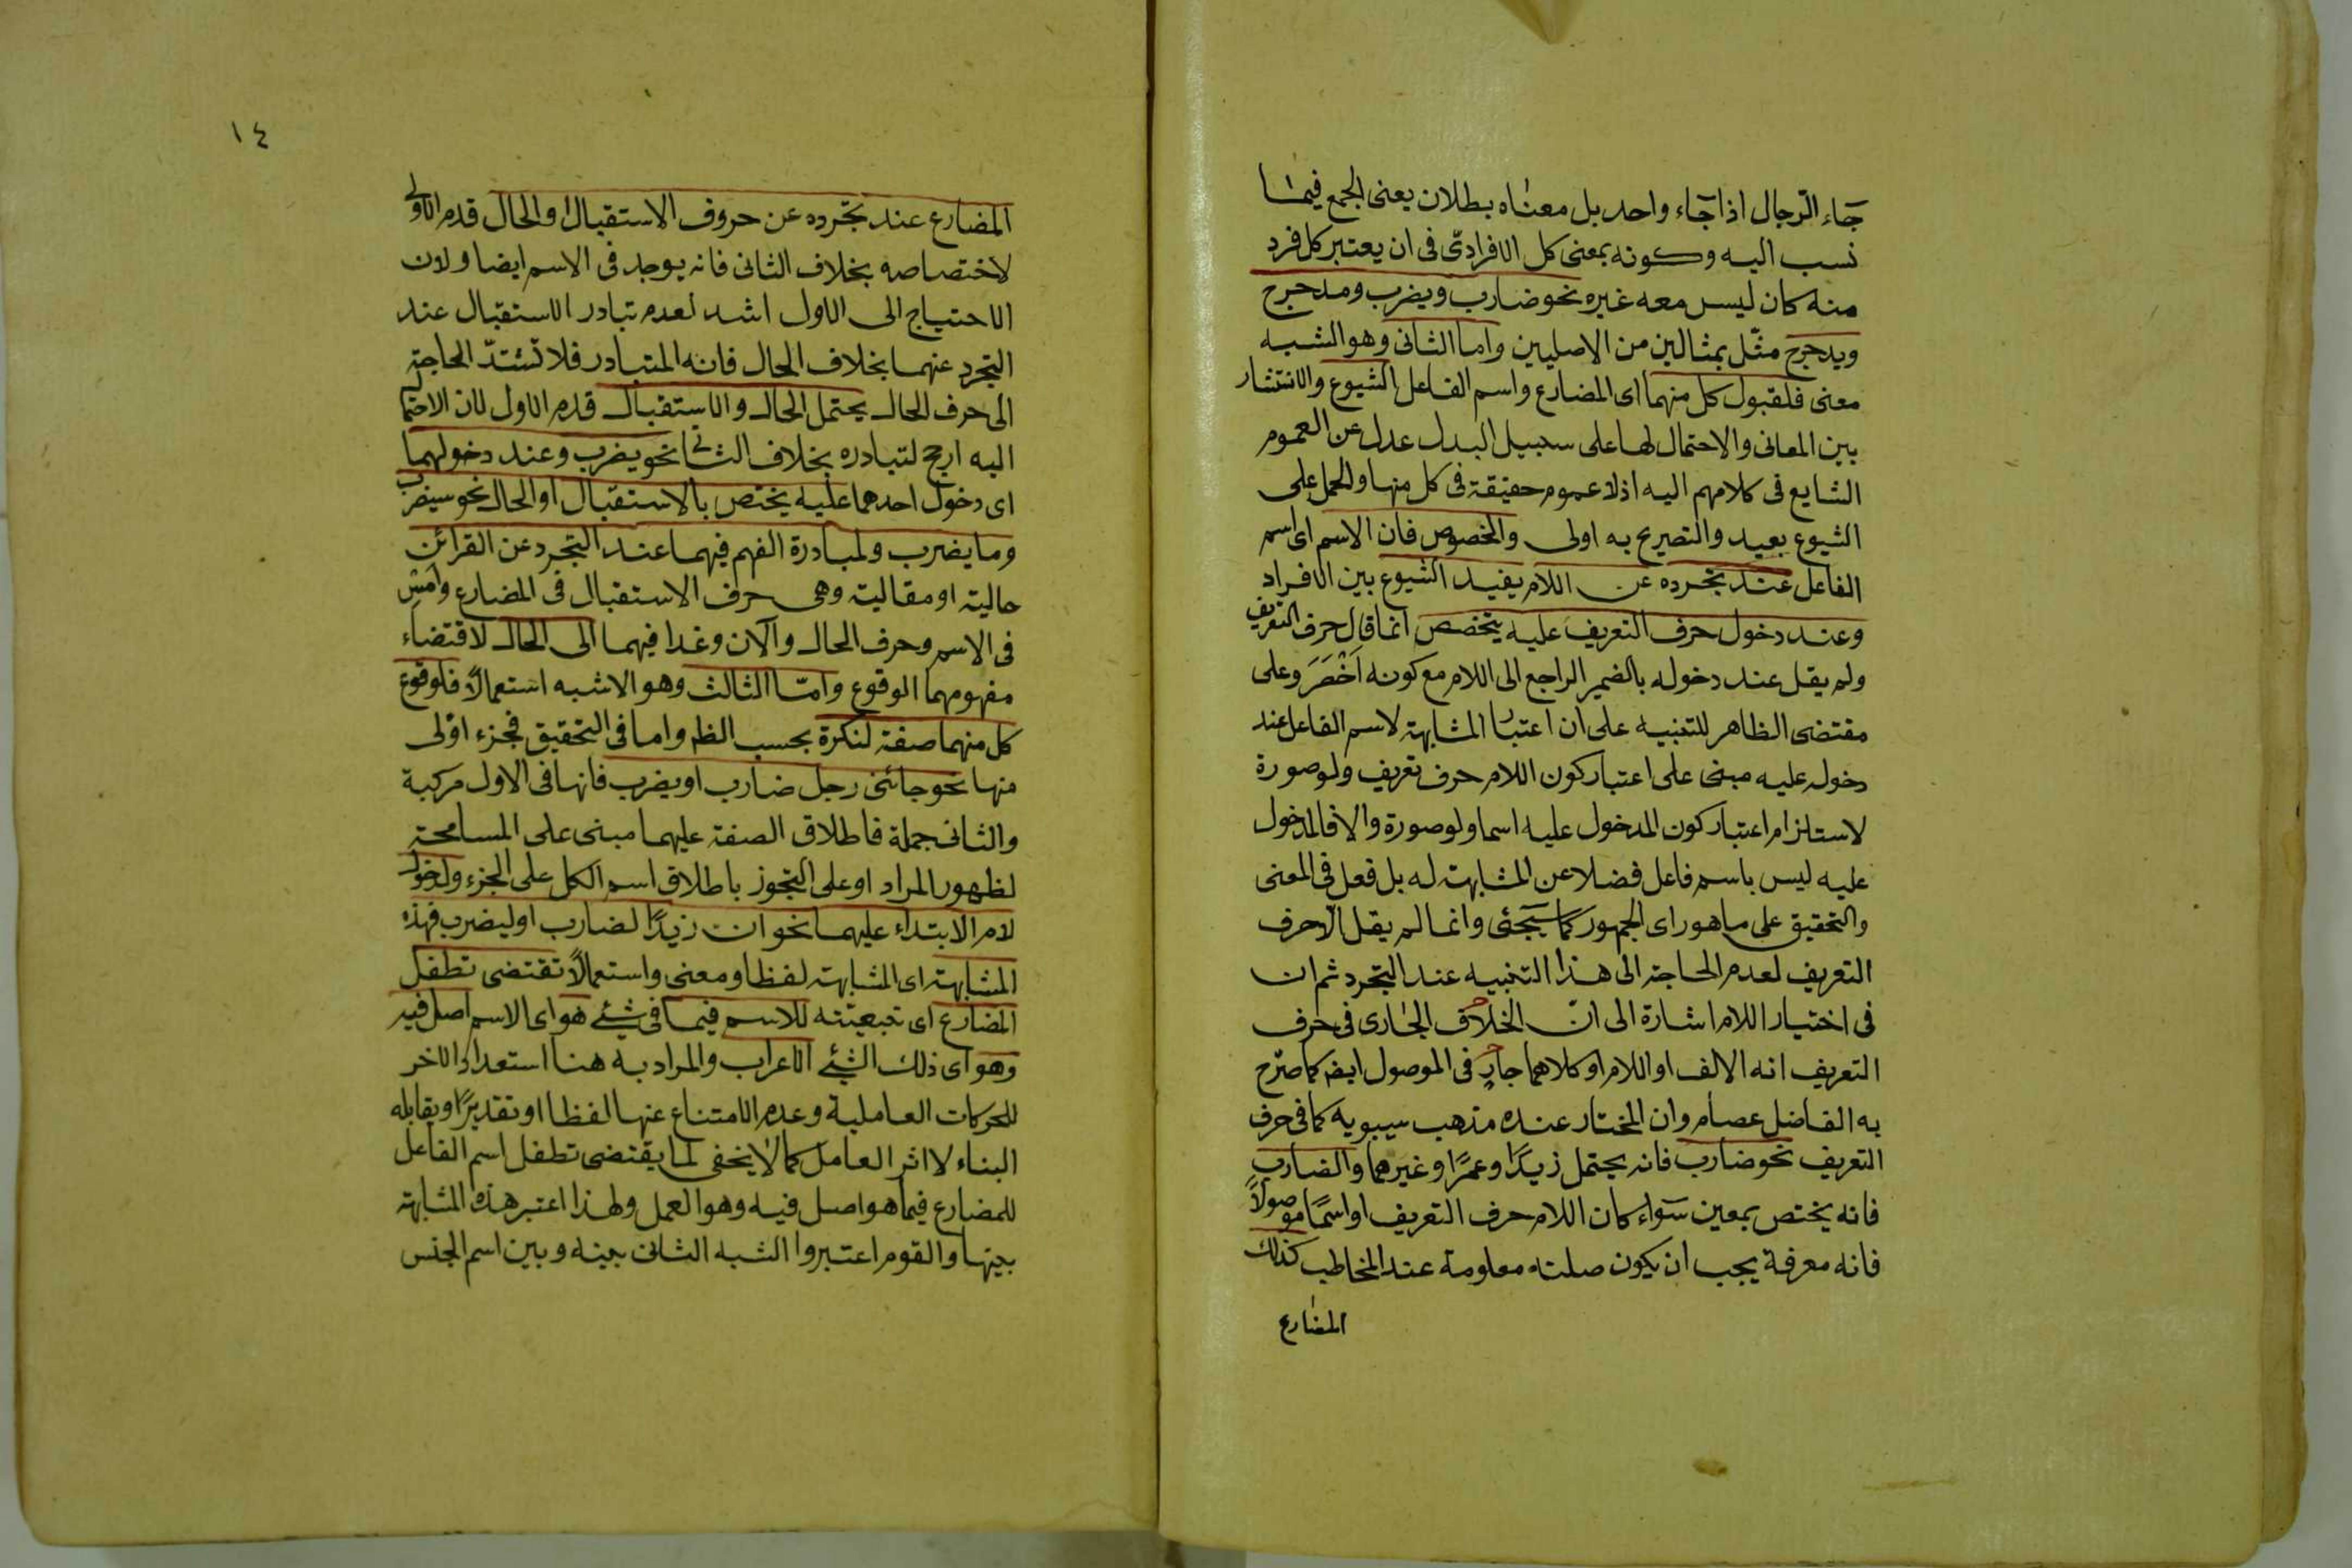 جاء الرجال اذا جاء واحد بل معناه بطلان يعنى الجمع فيما
نسب اليه وكونه بمعنى كل الافرادى فى ان يعتبر كل فرد
منه كان ليس معه غيره نحو ضارب ويضرب ومدحرج
ويدحرج مثّل بمثالين من الاصليين واما الثانى وهو الشبه
معنى فلقبول كل منهما اى المضارع واسم الفاعل الشيوع والانتشار
بين المعانى والاحتمال لها على سبيل البدل عدل عن العموم
الشايع فى كلامهم اليه اذلا عموم حقيقة فى كل منها والحمل على
الشيوع بعيد والتصريح به اولى والخصوص فان الاسم اى اسم
الفاعل عند تجرده عن اللام يفيد الشيوع بين الافراد
وعند دخول حرف التعريف عليه يتخصص انما قال حرف التعريف
ولم يقل عند دخوله بالضمير الراجع الى اللام مع كونه اخصر وعلى
مقتضى الظاهر للتنبيه على ان اعتبار المشابهة لاسم الفاعل عند
دخوله عليه مبنى على اعتبار كون اللام حرف تعريف ولو صورة
لاستلزام اعتبار كون المدخول عليه اسما ولو صورة والا فالمدخول
عليه ليس باسم فاعل فضلا عن المشابهة له بل فعل فى المعنى
والتحقيق على ما هو راى الجمهور كما سيجئ وانما لم يقل لام حرف
التعريف لعدم الحاجة الى هذا التنبيه عند التجرد ثم ان
فى اختيار اللام اشارة الى انّ الخلاف الجارى فى حرف
التعريف انه الالف او اللام او كلاهما جار فى الموصول ايضا كما صرّح
به الفاضل عصام وان المختار عنده مذهب سيبويه كما فى حرف
التعريف نحو ضارب فانه يحتمل زيدًا وعمرًا وغيرهما والضارب
فانه يختص بمعين سواء كان اللام حرف التعريف او اسمًا موصولاً
فانه معرفة يجب ان يكون صلته معلومة عند المخاطب كذلك
المضارع
١٤
المضارع عند تجرده عن حروف الاستقبال والحال قدم الاولى
لاختصاصه بخلاف الثانى فانه يوجد فى الاسم ايضا ولان
الاحتياج الى الاول اشد لعدم تبادر الاستقبال عند
التجرد عنهما بخلاف الحال فانه المتبادر فلا تشتدّ الحاجة
الى حرف الحال يحتمل الحال والاستقبال قدم الاول لان الاحتما
اليه ارجح لتبادره بخلاف الثانى نحو يضرب وعند دخولهما
اى دخول احدهما عليه يختص بالاستقبال او الحال نحو سيضرب
وما يضرب ولمبادرة الفهم فيهما عند التجرد عن القرائن
حالية او مقالية وهى حرف الاستقبال فى المضارع وامس
فى الاسم وحرف الحال والآن وغدا فيهما الى الحال لاقتضاء
مفهومهما الوقوع وامّا الثالث وهو الاشبه استعمالاً فلوقوع
كل منهما صفة لنكرة بحسب الظ وما فى التحقيق فجزء اوّلى
منها نحو جائنى رجل ضارب او يضرب فانها فى الاول مركبة
والثانى جملة فاطلاق الصفة عليهما مبنى على المسامحة
لظهور المراد او على التجوز باطلاق اسم الكل على الجزء ولدخول
لام الابتداء عليهما نحو ان زيدًا لضارب او ليضرب فهذه
المشابهة اى المشابهة لفظا ومعنى واستعمالاً تقتضى تطفل
المضارع اى تبعيّته للاسم فيما فى شئ هو اى الاسم اصل فيه
وهو اى ذلك الشئ الاعراب والمراد به هنا استعداد الاخر
للحركات العاملية وعدم الامتناع عنها لفظا او تقديرًا ويقابله
البناء لا اثر العامل كما لا يخفى لما يقتضى تطفل اسم الفاعل
للمضارع فيما هو اصل فيه وهو العمل ولهذا اعتبر هذه المشابهة
بينها والقوم اعتبروا الشبه الثانى بينه وبين اسم الجنس